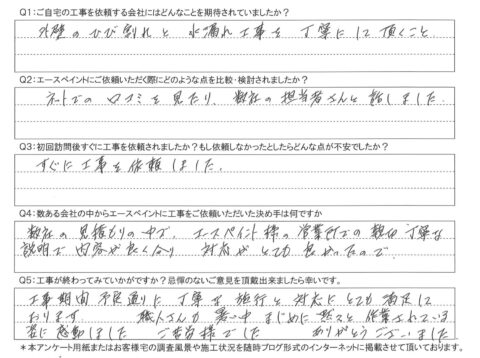 Q1：ご自宅の工事を依頼する会社にはどんなことを期待されていましたか？
外壁のひび割れと水漏れ工事を丁寧にして頂くこと
Q2：エースペイントにご依頼いただく際にどのような点を比較・検討されましたか？
ネットでの口コミを見たり、数社の担当者さんと話しました。
Q3：初回訪問後すぐに工事を依頼されましたか？もし依頼しなかったとしたらどんな点が不安でしたか？
すぐに工事を依頼しました。
Q4：数ある会社の中からエースペイントに工事をご依頼いただいた決め手は何ですか
数社の見積もりの中で、エースペイント様の営業所での親切丁寧な
説明で内容が良く分り 対応がとても良かったので。
Q5：工事が終わってみていかがですか？忌憚のないご意見を頂戴出来ましたら幸いです。
工事期間 予定通りに丁寧な施行と対応にとても満足して
おります。 職人さんも暑い中まじめに黙々と作業されている
姿に感動しました ご苦労様でした ありがとうございました
＊本アンケート用紙またはお客様宅の調査風景や施工状況を随時ブログ形式のインターネットに掲載させて頂いております。